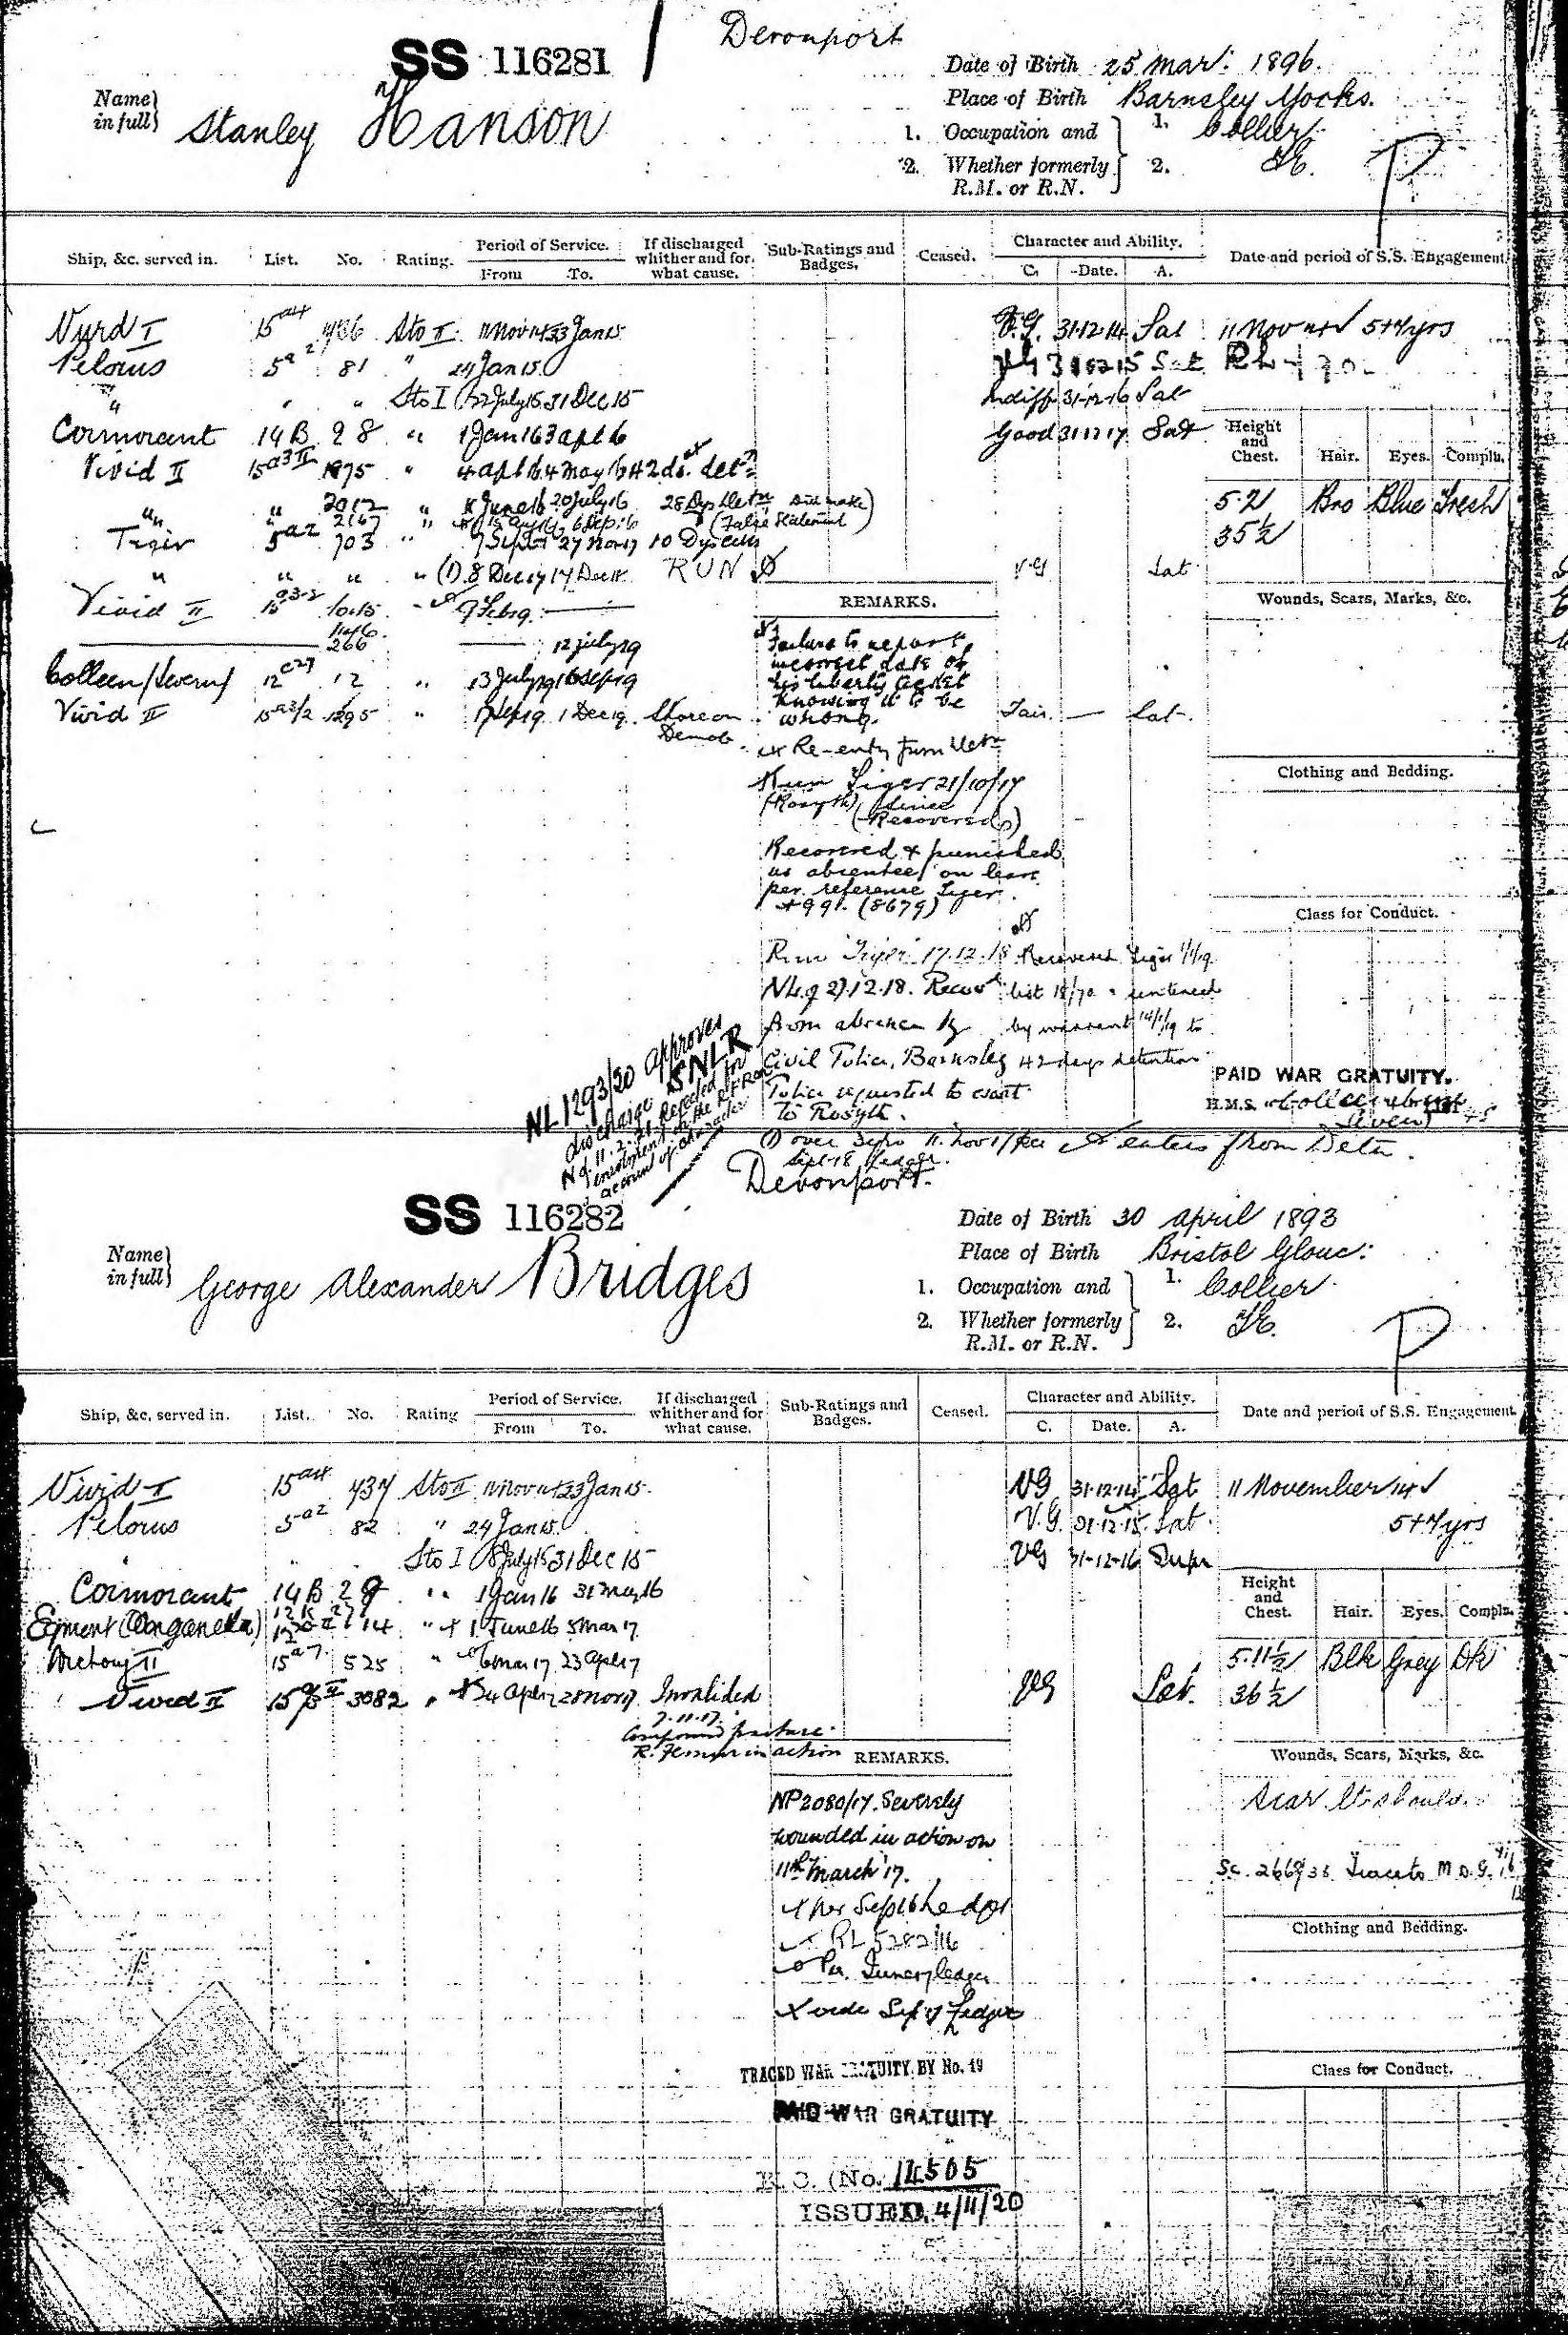 Devonport
SS 116281
Date of Birth 25 Mar: 1896.
Name in full} Stanley Hanson
Place of Birth Barnsley Yorks.
1. Occupation and } 1. Collier
2. Whether formerly R.M. or R.N. } 2.
P
Ship, &c. served in. List. No. Rating. Period of Service. From To. If discharged whither and for what cause. Sub-Ratings and Badges. Ceased. Character and Ability. C. Date. A. Date and period of S.S. Engagement.
Vivid I 15 a4 Sto II 11 Nov 14 23 Jan 15 V.G. 31-12-14 Sat 11 Nov 14 5+7 yrs
Pelorus 5 a2 81 " 24 Jan 15 Sat
" " " Sto I 22 July 15 31 Dec 15 Indiff 31-12-16 Sat
Cormorant 14B 28 " 1 Jan 16 3 Apl 16 Good 31 12 17 Sat
Height and Chest. Hair. Eyes. Compln.
Vivid II 15 a3 II " 4 Apl 16 4 May 16 42 ds. det
" " 2012 " June 16 20 July 16 28 Dys Detn (False Statement)
5-2 Bro Blue Fresh
35½
Tiger 5 a2 703 " 7 Sept 27 Nov 17 10 Dys Cells
" " " " (1) 8 Dec 17 17 Dec 18 RUN VG Sat
Vivid II 15 " 7 Feb 19
REMARKS.
Wounds, Scars, Marks, &c.
266 12 July 19
Colleen (Severn) 12 12 " 13 July 19 16 Sep 19
Vivid II 15 a3/2 1295 " 17 Sep 19 1 Dec 19 Shore on Demob. Fair. — Sat.
Failure to report
incorrect date on
his liberty ticket
knowing it to be
wrong.
Re-entry from Detn
Clothing and Bedding.
Run Tiger 21/10/17
(Rosyth) since
(Recovered)
Recovered & punished
as absentee on leave
per reference Tiger
+991. (8679)
Class for Conduct.
Run Tiger 17.12.18 Recovered Tiger 1/1/19
NL.q 27.12.18. Recov list 18/70 & sentenced
from absence by by warrant 14/1/19 to
Civil Police, Barnsley 42 days detention
Police requested to escort
to Rosyth.
PAID WAR GRATUITY.
H.M.S. Colleen
NL 1293/20 approves
discharge SNLR
rejected for
enrolment in the R.F.R. on
account of character
(1) over
Sept 18 Ledger. enters from Detn.
Devonport.
SS 116282
Date of Birth 30 April 1893
Name in full} George Alexander Bridges
Place of Birth Bristol Glouc:
1. Occupation and } 1. Collier
2. Whether formerly R.M. or R.N. } 2.
P
Ship, &c, served in. List. No. Rating Period of Service. From To. If discharged whither and for what cause. Sub-Ratings and Badges. Ceased. Character and Ability. C. Date. A. Date and period of S.S. Engagement.
Vivid I 15 a4 437 Sto II 11 Nov 14 23 Jan 15 VG 31-12-14 Sat 11 November 14
Pelorus 5 a2 82 " 24 Jan 15 V.G. 31-12-15 Sat 5+7 yrs
" " Sto I 8 July 15 31 Dec 15 VG 31-12-16 Supr
Cormorant 14B 29 " 1 Jan 16 31 May 16
Height and Chest. Hair. Eyes. Compln.
Egment 14 " 1 June 16 5 Mar 17
Victory II 15 a7 525 " 6 Mar 17 23 Apl 17
5-11½ Blk Grey Dk
36½
Vivid II 15 3082 " 24 Apl 17 28 Nov 17 Invalided VG Sat.
7.11.17.
Compound fracture
R. Femur in action
REMARKS.
Wounds, Scars, Marks, &c.
NP 2080/17. Severely
wounded in action on
11th March '17.
Scar lt shoulder
per Sept 16 Ledger
RL 5282/16
Per June 17 ledger
vide Sep 17 Ledger
Clothing and Bedding.
TRACED WAR GRATUITY BY No. 49
Class for Conduct.
PAID WAR GRATUITY
(No. 14505
ISSUED. 4/11/20